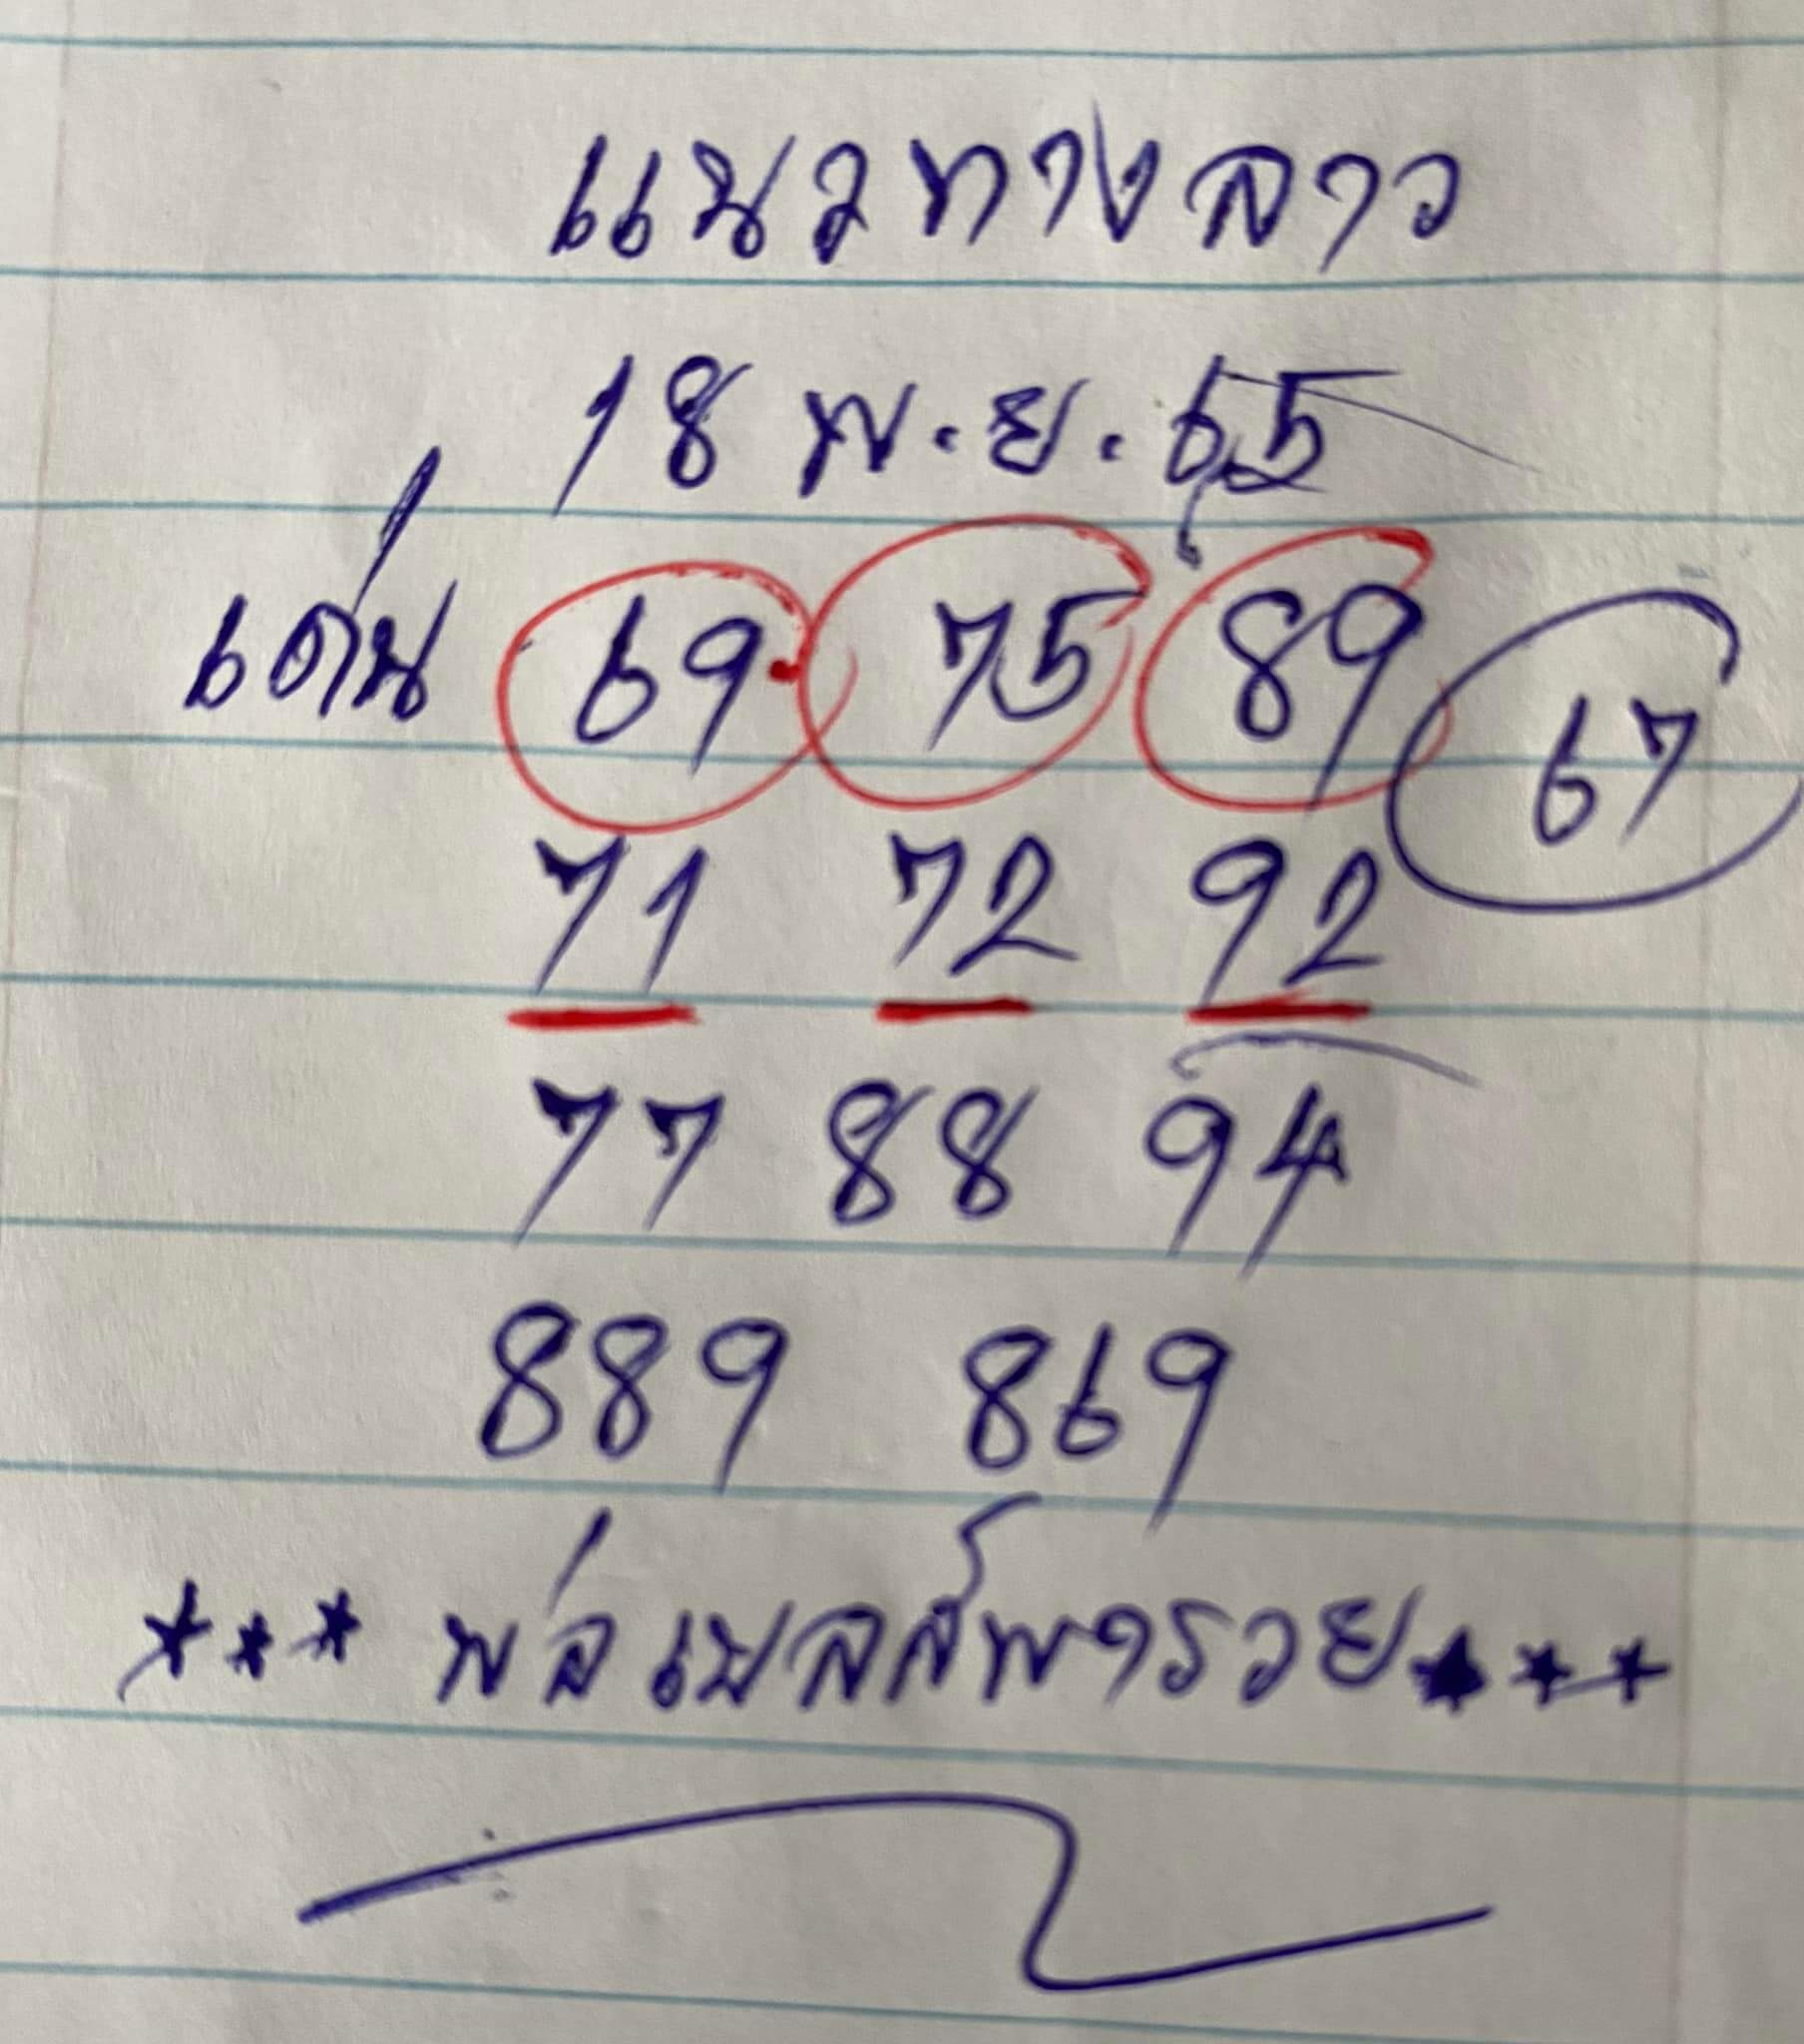 แนวทางลาว
18 พ.ย. 65
เด่น 69 75 89 67
71 72 92
77 88 94
889 869
*** พ่อเบลส์พารวย ***